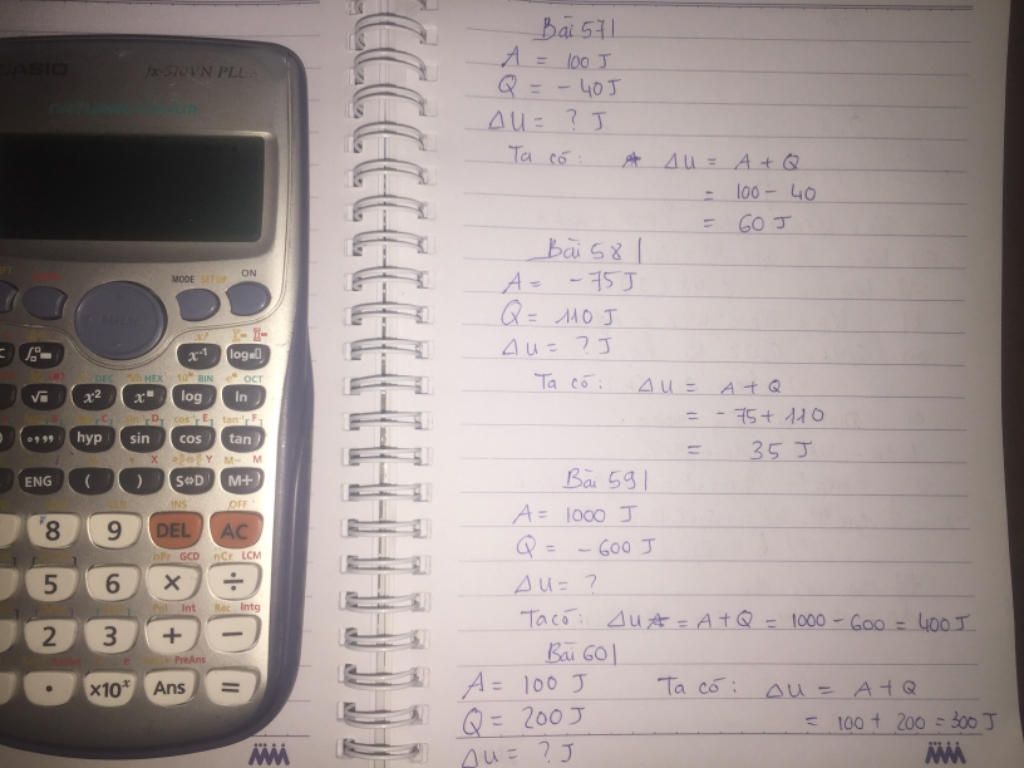 CASIO
fx-570VN PLUS
MODE SETUP ON
x⁻¹ log
√ x² x log ln
hyp sin cos tan
ENG ( ) S⇔D M+
8 9 DEL AC
5 6 × ÷
2 3 + −
. ×10ˣ Ans =
Bài 57|
A = 100 J
Q = - 40 J
ΔU = ? J
Ta có: ΔU = A + Q
= 100 - 40
= 60 J
Bài 58|
A = - 75 J
Q = 110 J
ΔU = ? J
Ta có: ΔU = A + Q
= - 75 + 110
= 35 J
Bài 59|
A = 1000 J
Q = - 600 J
ΔU = ?
Ta có: ΔU = A + Q = 1000 - 600 = 400 J
Bài 60|
A = 100 J Ta có: ΔU = A + Q
Q = 200 J = 100 + 200 = 300 J
ΔU = ? J